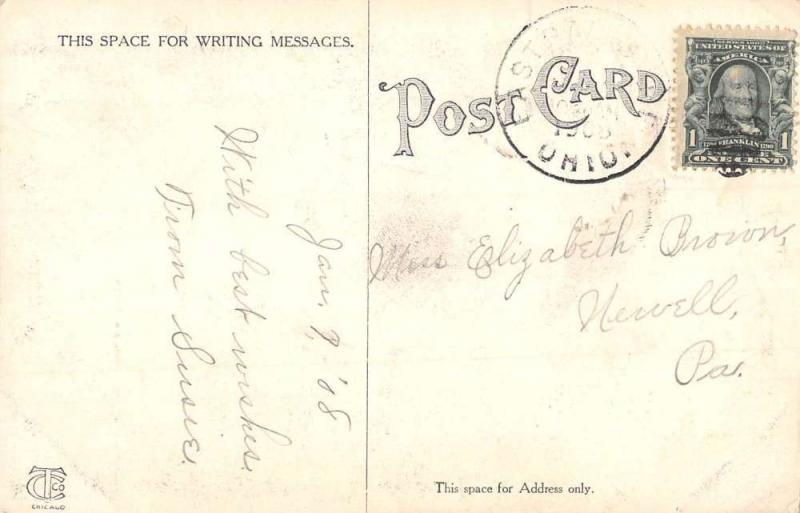 THIS SPACE FOR WRITING MESSAGES.
POST CARD
1908
OHIO
SERIES 1902
UNITED STATES OF
AMERICA
1 FRANKLIN 1
ONE CENT
Jan, 9, '08
With best wishes.
From Susie.
Miss Elizabeth Brown,
Newell,
Pa.
This space for Address only.
CTCo
CHICAGO